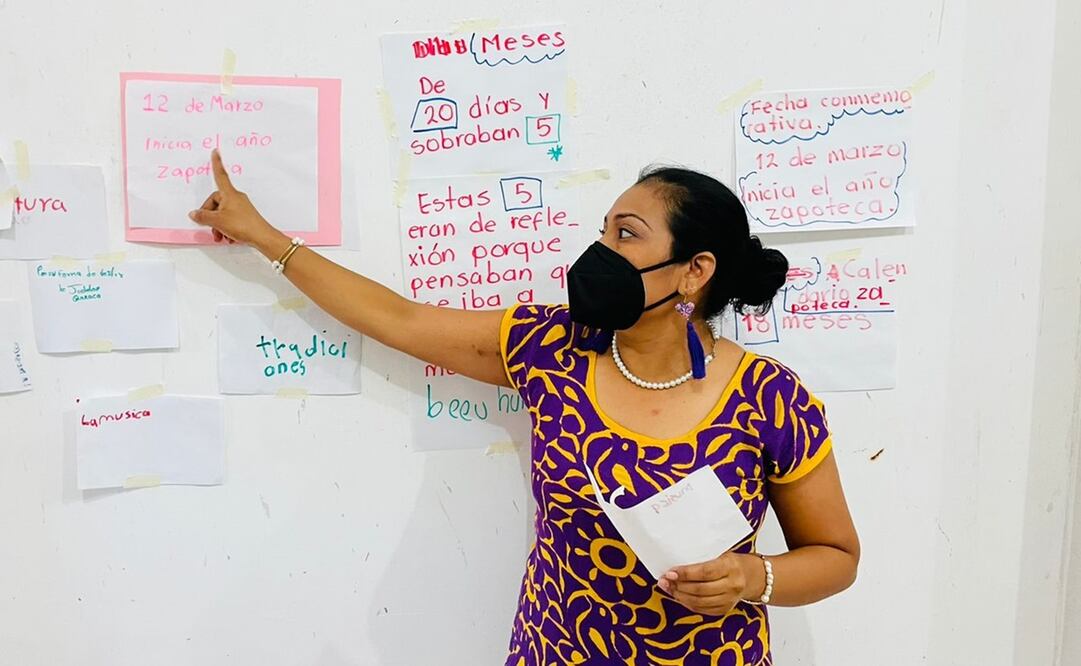 12 de Marzo
Inicia el año
zapoteca
tura
tradici
ones
La musica
Meses
De
20 días y
sobraban 5
Estas 5
eran de refle_
xión porque
pensaban q
se iba a
beeu
Fecha conmemo
rativa.
12 de marzo
Inicia el año
zapoteca.
Calen
dario za_
poteca.
18 meses